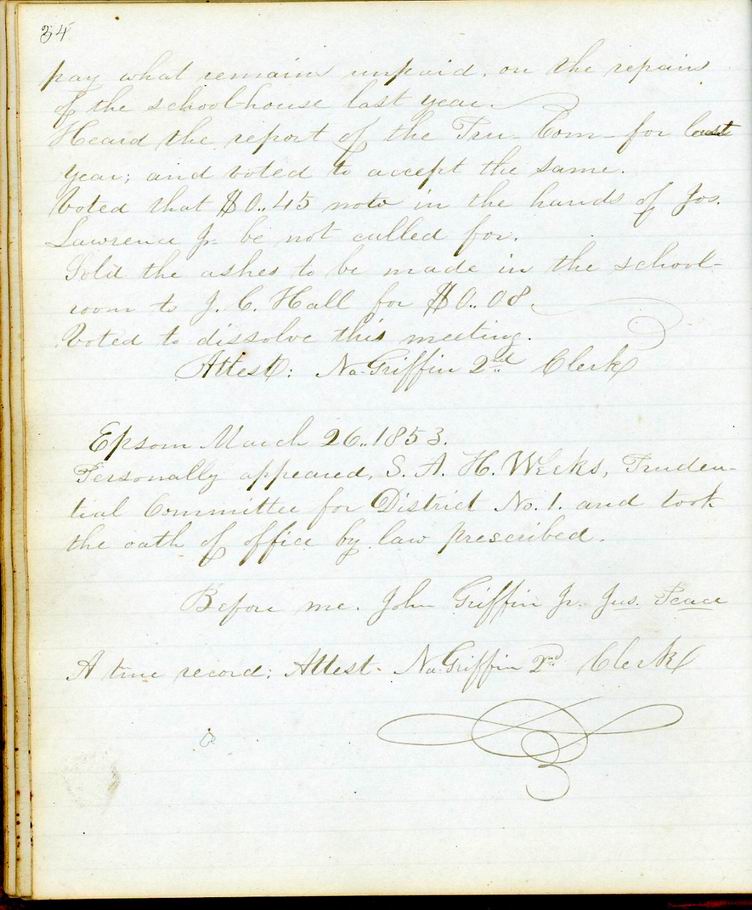 34
pay what remains unpaid, on the repairs
of the school-house last year.
Heard the report of the Pru. Com. for last
year; and voted to accept the same.
Voted that $0..45 note in the hands of Jos.
Lawrence Jr. be not called for.
Sold the ashes to be made in the school-
room to J. C. Hall for $0..08.
Voted to dissolve this meeting.
Attest: Na. Griffin 2nd Clerk
Epsom March 26..1853.
Personally appeared, S. A. H. Weeks, Pruden-
tial Committee for District No. 1. and took
the oath of office by law prescribed.
Before me. John Griffin Jr. Jus. Peace
A true record; Attest. Na. Griffin 2nd Clerk